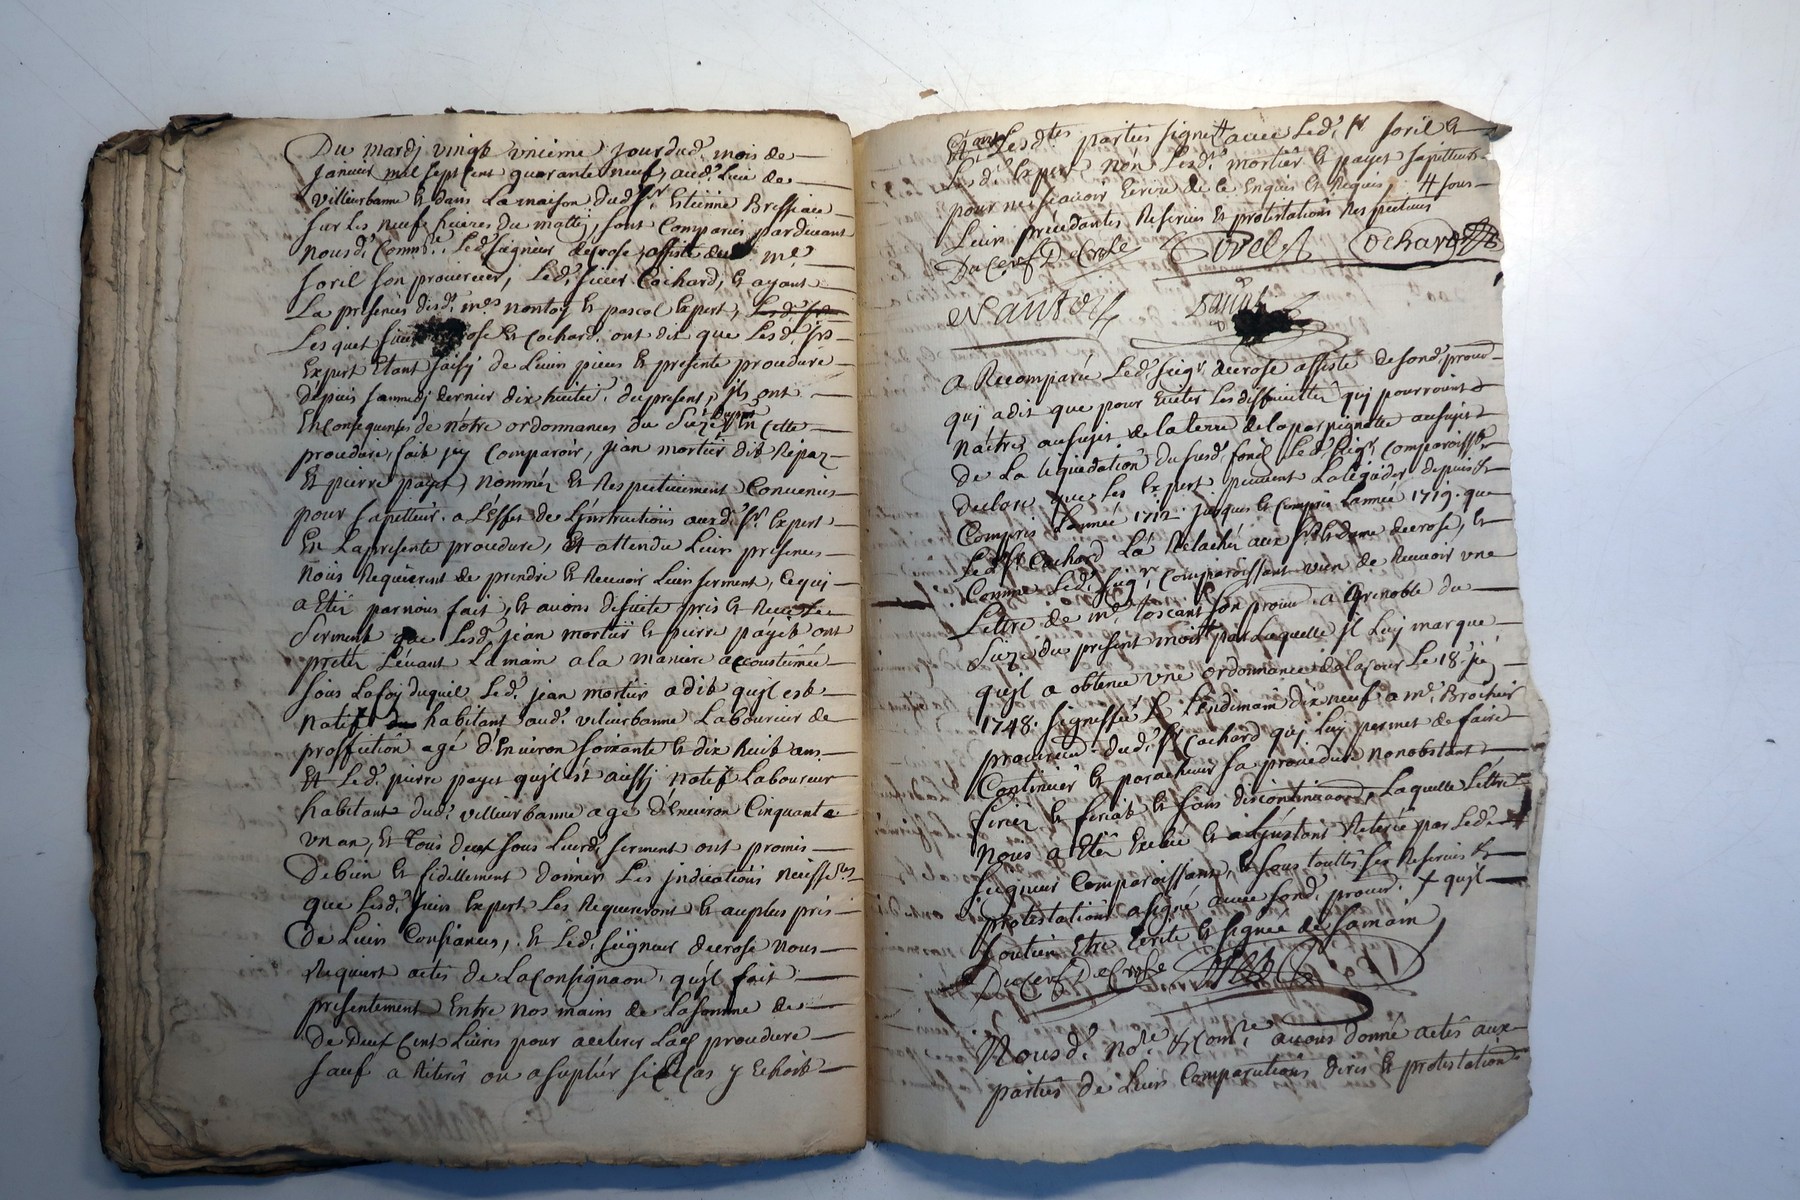 Du mardj vingt unieme jour dud. mois de
janvier mil sept cent quarante neuf, aud. Lieu de
villeurbanne & dans La maison dud. Sr Estienne Bressiau
sur les neufs heures du mattij, sont Comparus pardevant
Nous d. Commre. Led. Seigneur decrose assisté de me
sorel son procureur, Led. sieur Cochard, & ayant
La presence desd. mes nantoy & pascal Expert,
Lesquels sieurs decrose & Cochard ont dit que Lesd. Srs
Expert Etant saisÿ de Leurs pieces & presente procedure
depuis sammedj dernier dix huitié. du present, jls ont
En Consequences de nôtre ordonnances du seize En Cette
procedure, fait jcy Comparoir, jean mortier dit Repaz
& pierre payet, nommés & Respectivement Convenus
pour sapitteurs a L'Effet de L'jnstructions auxd. srs Expert
En La presente procedure, & attendu Leurs presences
Nous Requierent de prendre & Recevoir Leur serment, Ce quj
a Eté par nous fait, & avons de suite pris & Receu Le
Serment que Lesd. jean mortier & pierre payet ont
pretés Levant La main a la maniere accoustumée
sous La foy duquel Led. jean mortier a dit qu'jl est
natif habitant aud. villeurbanne Laboureur de
proffection agé d'Environ soixante & dix huit ans
Et Led. pierre payet qu'jl est aussj natif Laboureur
habitant dud. villeurbanne agé d'Environ Cinquante
un an, & Tous deux sous Leurd. serment ont promis
De bien & fidellement donner Les jndications necessres
que Lesd. sieurs Expert Les Requereront & au plus pres
De Leurs Consiances, & Led. seigneur decrose nous
Requiert actes de La Consignaon. qu'jl fait
presentement Entre nos mains de La somme de
de Deux Cent Livres pour accelerer Lad. procedure
sauf a Reiterer ou a supléer si le Cas y Echoit
Lesdtes parties signé avec Led. Sr sorel &
Les d. Expert non Lesd. mortier & payet sapitteurs
pour ne sçavoir Ecrire de ce Enquis & Requis, 4 sous
Leurs precedantes Reserves & protestations Respectives
Du Cerf DeCrose Sorel Cochard
Nantoy
a Recomparu Led. seigr. decrose assisté de sond. procur
quj a dit que pour Eviter Les difficultés quj pourroient
naitres au sujet de la terre de la parpignotte au sujet
de La liquidation du susd. fond Led. seigr. Comparoissant
declare que les Expert peuvent La liquider depuis &
Compris L'année 1712. jusques & Compris L'année 1719. que
Led. Sr Cochard L'a Relaché aux Sr & Dame decrose, &
Comme Led. seigr. Comparoissant vien de Recevoir une
Lettre de me. toscant son procur. a Grenoble du
seize du present mois par Laquelle jl Luj marque
qu'jl a obtenue une ordonnance de la Cour Le 18. jer
1748. signiffiée Le Lendimain dix neuf a me. Brochier
procureur dud. Sr Cochard quj Luj permet de faire
Continuer & parachever sa procedure nonobstant
feriez & feriat & sans discontinuaon, Laquelle Lettre
Nous a Eté Exibée & a L'jnstant Retirée par Led.
seigneur Comparoissant, & sous touttes ses Reserves &
protestations a signé avec sond. procur. + qu'jl
soutien Etre Ecrite & signée de sa main
Du Cerf DeCrose Sorel
Nous d. Nore & Comre avons donné actes aux
parties de Leurs Comparutions dires & protestations